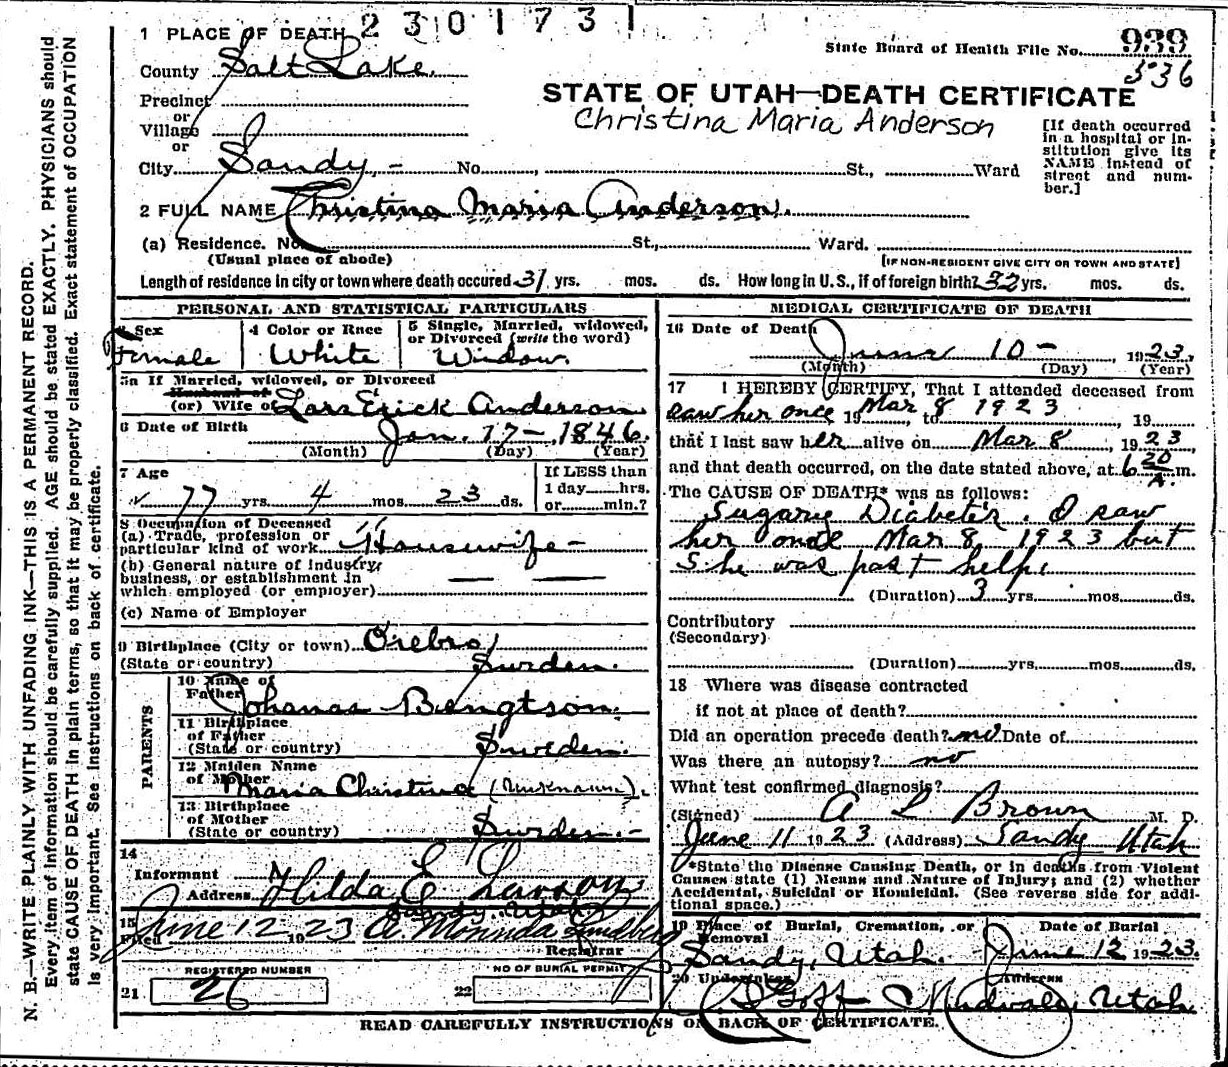 2301731
1 PLACE OF DEATH
State Board of Health File No. 939
536
County Salt Lake.
STATE OF UTAH—DEATH CERTIFICATE
Christina Maria Anderson
Precinct
or
Village
or
City Sandy, - No. , St., Ward
[If death occurred in a hospital or institution give its NAME instead of street and number.]
2 FULL NAME Christina Maria Anderson.
(a) Residence. No. St., Ward.
(Usual place of abode) [IF NON-RESIDENT GIVE CITY OR TOWN AND STATE]
Length of residence in city or town where death occured 31 yrs. mos. ds. How long in U.S., if of foreign birth? 32 yrs. mos. ds.
PERSONAL AND STATISTICAL PARTICULARS
3 Sex Female
4 Color or Race White
5 Single, Married, widowed, or Divorced (write the word) Widow.
5a If Married, widowed, or Divorced
Husband of
(or) Wife of Lars Erick Anderson
6 Date of Birth Jan. 17-, 1846.
(Month) (Day) (Year)
7 Age 77 yrs. 4 mos. 23 ds.
If LESS than
1 day hrs.
or min.?
8 Occupation of Deceased
(a) Trade, profession or
particular kind of work Housewife -
(b) General nature of Industry,
business, or establishment in
which employed (or employer)
(c) Name of Employer
9 Birthplace (City or town) Orebro
(State or country) Sweden.
PARENTS
10 Name of
Father Johanas Bengtson.
11 Birthplace
of Father
(State or country) Sweden.
12 Maiden Name
of Mother Maria Christina (Unknown).
13 Birthplace
of Mother
(State or country) Sweden. -
14
Informant Hilda E Larson
Address Sandy, Utah
15
Filed June 12 1923 Lundberg
Registrar
REGISTERED NUMBER
21 26
NO OF BURIAL PERMIT
22
MEDICAL CERTIFICATE OF DEATH
16 Date of Death
June 10 - , 1923.
(Month) (Day) (Year)
17 I HEREBY CERTIFY, That I attended deceased from
saw her once 19 Mar 8 to 1923 , 19
that I last saw her alive on Mar 8 , 1923
and that death occurred, on the date stated above, at 6 20 A. m.
The CAUSE OF DEATH* was as follows:
Sugary Diabetes. I saw
her once Mar 8, 1923 but
She was past help.
(Duration) 3 yrs. mos. ds.
Contributory
(Secondary)
(Duration) yrs. mos. ds.
18 Where was disease contracted
if not at place of death?
Did an operation precede death? no Date of
Was there an autopsy? no
What test confirmed diagnosis?
(Signed) A L Brown M. D.
June 11 1923 (Address) Sandy Utah
*State the Disease Causing Death, or in deaths from Violent
Causes state (1) Means and Nature of Injury; and (2) whether
Accidental, Suicidal or Homicidal. (See reverse side for additional space.)
19 Place of Burial, Cremation, or
Removal
Sandy, Utah.
Date of Burial
June 12 1923.
20 Undertaker Goff
Address
Midvale, Utah
READ CAREFULLY INSTRUCTIONS ON BACK OF CERTIFICATE.
N. B.—WRITE PLAINLY WITH UNFADING INK—THIS IS A PERMANENT RECORD.
Every item of information should be carefully supplied. AGE should be stated EXACTLY. PHYSICIANS should
state CAUSE OF DEATH in plain terms, so that it may be properly classified. Exact statement of OCCUPATION
is very important. See instructions on back of certificate.